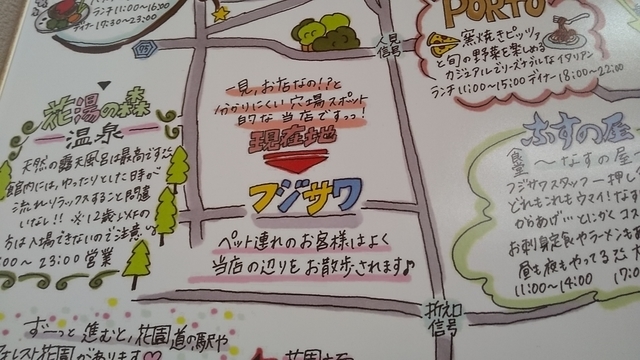 ランチ11:00〜16:00
ディナー17:30〜23:00
95
人見
信号
PORTO
窯焼きピッツァ
と旬の野菜を楽しめる
カジュアルでリーズナブルなイタリアン
ランチ11:00〜15:00 ディナー18:00〜22:00
一見、お店なの!?と
分かりにくい穴場スポット
的な当店ですっ!
現在地
フジサワ
ペット連れのお客様はよく
当店の辺りをお散歩されます♪
花湯の森
温泉
天然の露天風呂は最高です
館内には、ゆったりとした時が
流れリラックスすること間違
いなし!! ※12歳以下の
方は入場できないので注意
:00〜23:00営業
なすの屋
食堂
〜なすの屋
フジサワスタッフ一押し
どれもこれもウマイ!な
からあげ…とにかくコ
お刺身定食やラーメンもあ
昼も夜もやってる
11:00〜14:00 17:0
折え口
信号
ずーっと進むと、花園道の駅や
ォレスト花園があります♡
花園